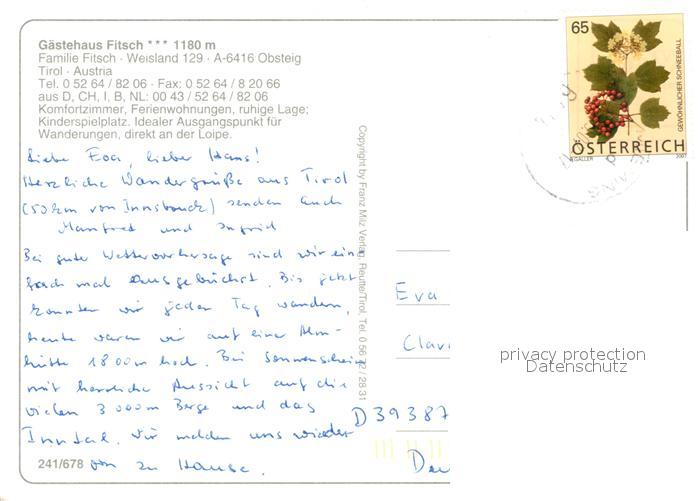 Gästehaus Fitsch *** 1180 m
Familie Fitsch · Weisland 129 · A-6416 Obsteig
Tirol · Austria
Tel. 0 52 64 / 82 06 · Fax: 0 52 64 / 8 20 66
aus D, CH, I, B, NL: 00 43 / 52 64 / 82 06
Komfortzimmer, Ferienwohnungen, ruhige Lage;
Kinderspielplatz. Idealer Ausgangspunkt für
Wanderungen, direkt an der Loipe.
Liebe Eva, lieber Hans!
Herzliche Wandergrüße aus Tirol
(50 km von Innsbruck) senden Euch
Manfred und Ingrid
Bei guter Wettervorhersage sind wir ein-
fach mal ausgebüchst. Bis jetzt
konnten wir jeden Tag wandern,
heute waren wir auf einer Alm-
hütte 1800m hoch. Bei Sonnenschein
mit herrliche Aussicht auf die
vielen 3000m Berge und das
Inntal. Wir melden uns wieder
von zu Hause.
241/678
Copyright by Franz Milz Verlag, Reutte/Tirol, Tel. 0 56 72 / 28 31
65
GEWÖHNLICHER SCHNEEBALL
ÖSTERREICH
GALLER
2007
Eva
D 39387
privacy protection
Datenschutz